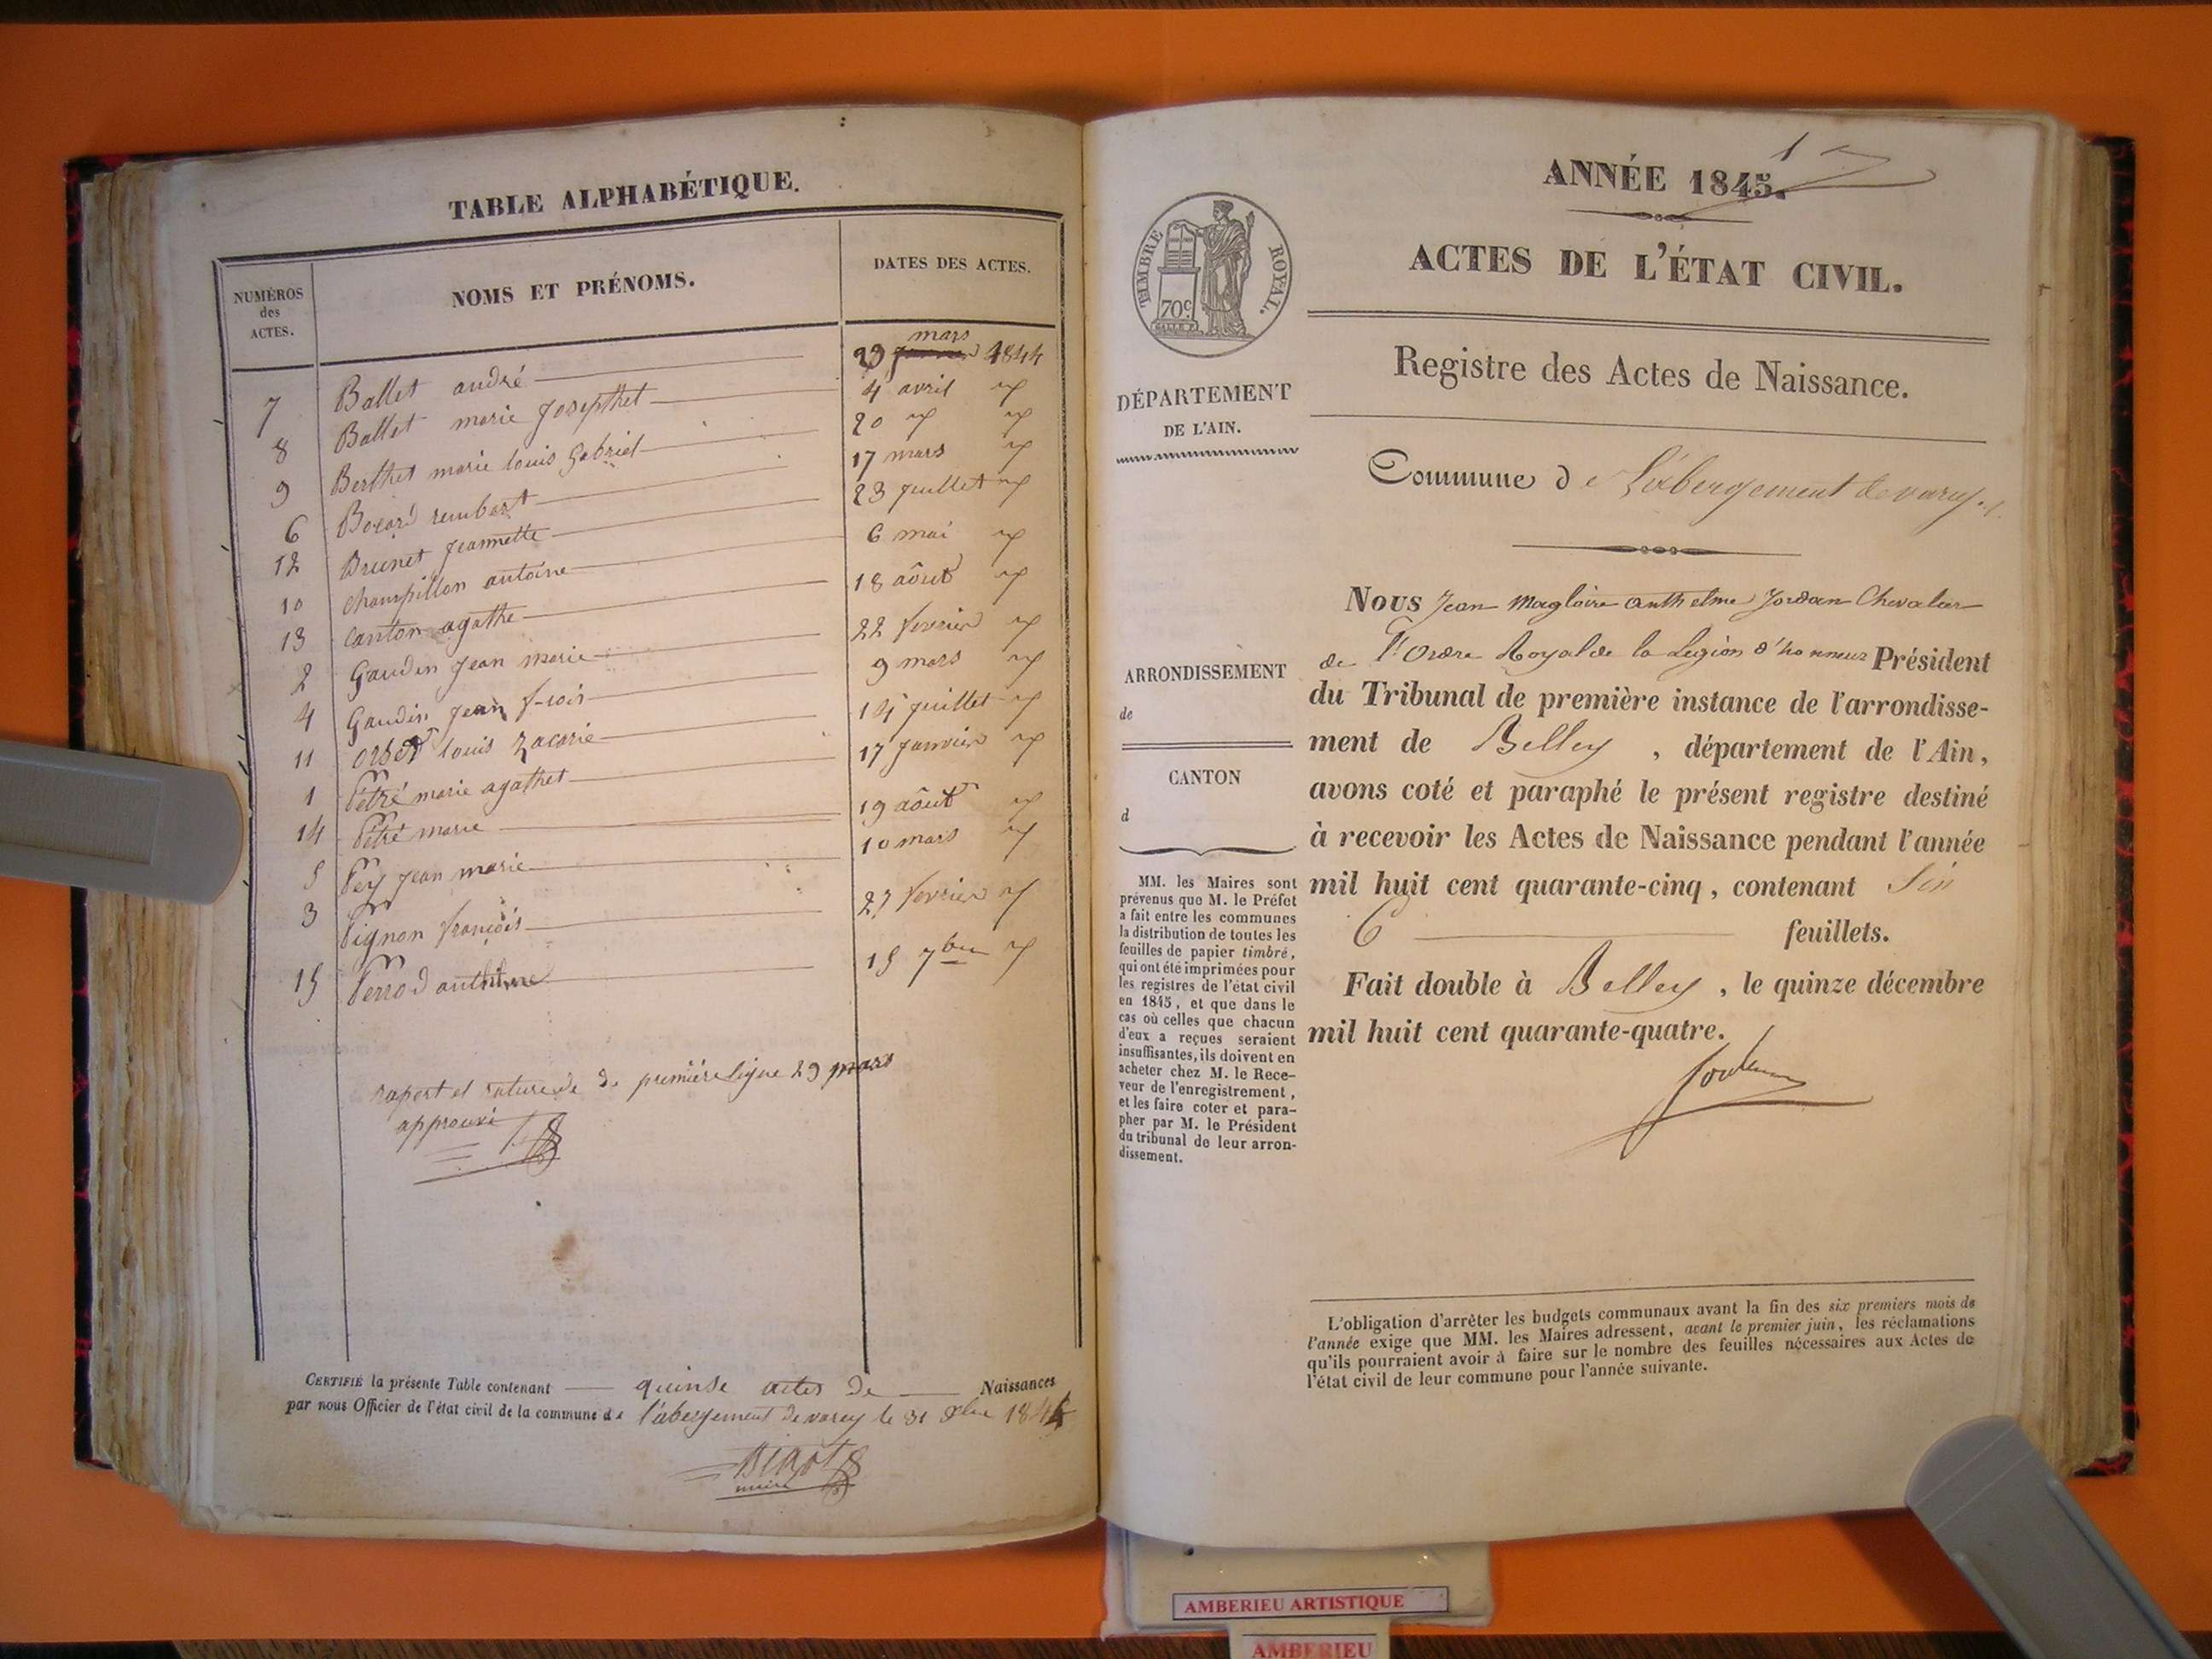 TABLE ALPHABÉTIQUE.
NUMÉROS des ACTES. NOMS ET PRÉNOMS. DATES DES ACTES.
mars
7 Ballet andré 29 1844
8 Ballet marie Josepthet 4 avril
9 Berthet marie louis Gabriel 20
6 Bozard rembert 17 mars
12 Brunet Jeannette 23 juillet
10 Champillon antoine 6 mai
13 Canton agathe 18 aôut
2 Gaudin Jean marie 22 fevrier
4 Gaudin Jean f-cois 9 mars
11 Orset louis Zacarie 14 juillet
1 Pétré marie agathet 17 janvier
14 Pétré marie 19 aôut
5 Pey Jean marie 10 mars
3 Pignon françois 27 fevrier
15 Perrod 15 7bre
raport et rature de première ligne 29 mars
approuvé
CERTIFIÉ la présente Table contenant quinse actes de Naissances
par nous Officier de l'état civil de la commune de l'abergement de varey le 31 1844
maire
ANNÉE 1845.
1
TIMBRE ROYAL.
70c
ACTES DE L'ÉTAT CIVIL.
Registre des Actes de Naissance.
DÉPARTEMENT
DE L'AIN.
Commune de L'abergement de varey.
ARRONDISSEMENT
de
CANTON
d
MM. les Maires sont
prévenus que M. le Préfet
a fait entre les communes
la distribution de toutes les
feuilles de papier timbré,
qui ont été imprimées pour
les registres de l'état civil
en 1845, et que dans le
cas où celles que chacun
d'eux a reçues seraient
insuffisantes, ils doivent en
acheter chez M. le Rece-
veur de l'enregistrement,
et les faire coter et para-
pher par M. le Président
du tribunal de leur arron-
dissement.
Nous Jean Magloire Anthelme Jordan Chevalier
de l'Ordre Royal de la Légion d'honneur Président
du Tribunal de première instance de l'arrondisse-
ment de Belley, département de l'Ain,
avons coté et paraphé le présent registre destiné
à recevoir les Actes de Naissance pendant l'année
mil huit cent quarante-cinq, contenant Six
6 feuillets.
Fait double à Belley, le quinze décembre
mil huit cent quarante-quatre.
L'obligation d'arrêter les budgets communaux avant la fin des six premiers mois de
l'année exige que MM. les Maires adressent, avant le premier juin, les réclamations
qu'ils pourraient avoir à faire sur le nombre des feuilles nécessaires aux Actes de
l'état civil de leur commune pour l'année suivante.
AMBERIEU ARTISTIQUE
AMBERIEU